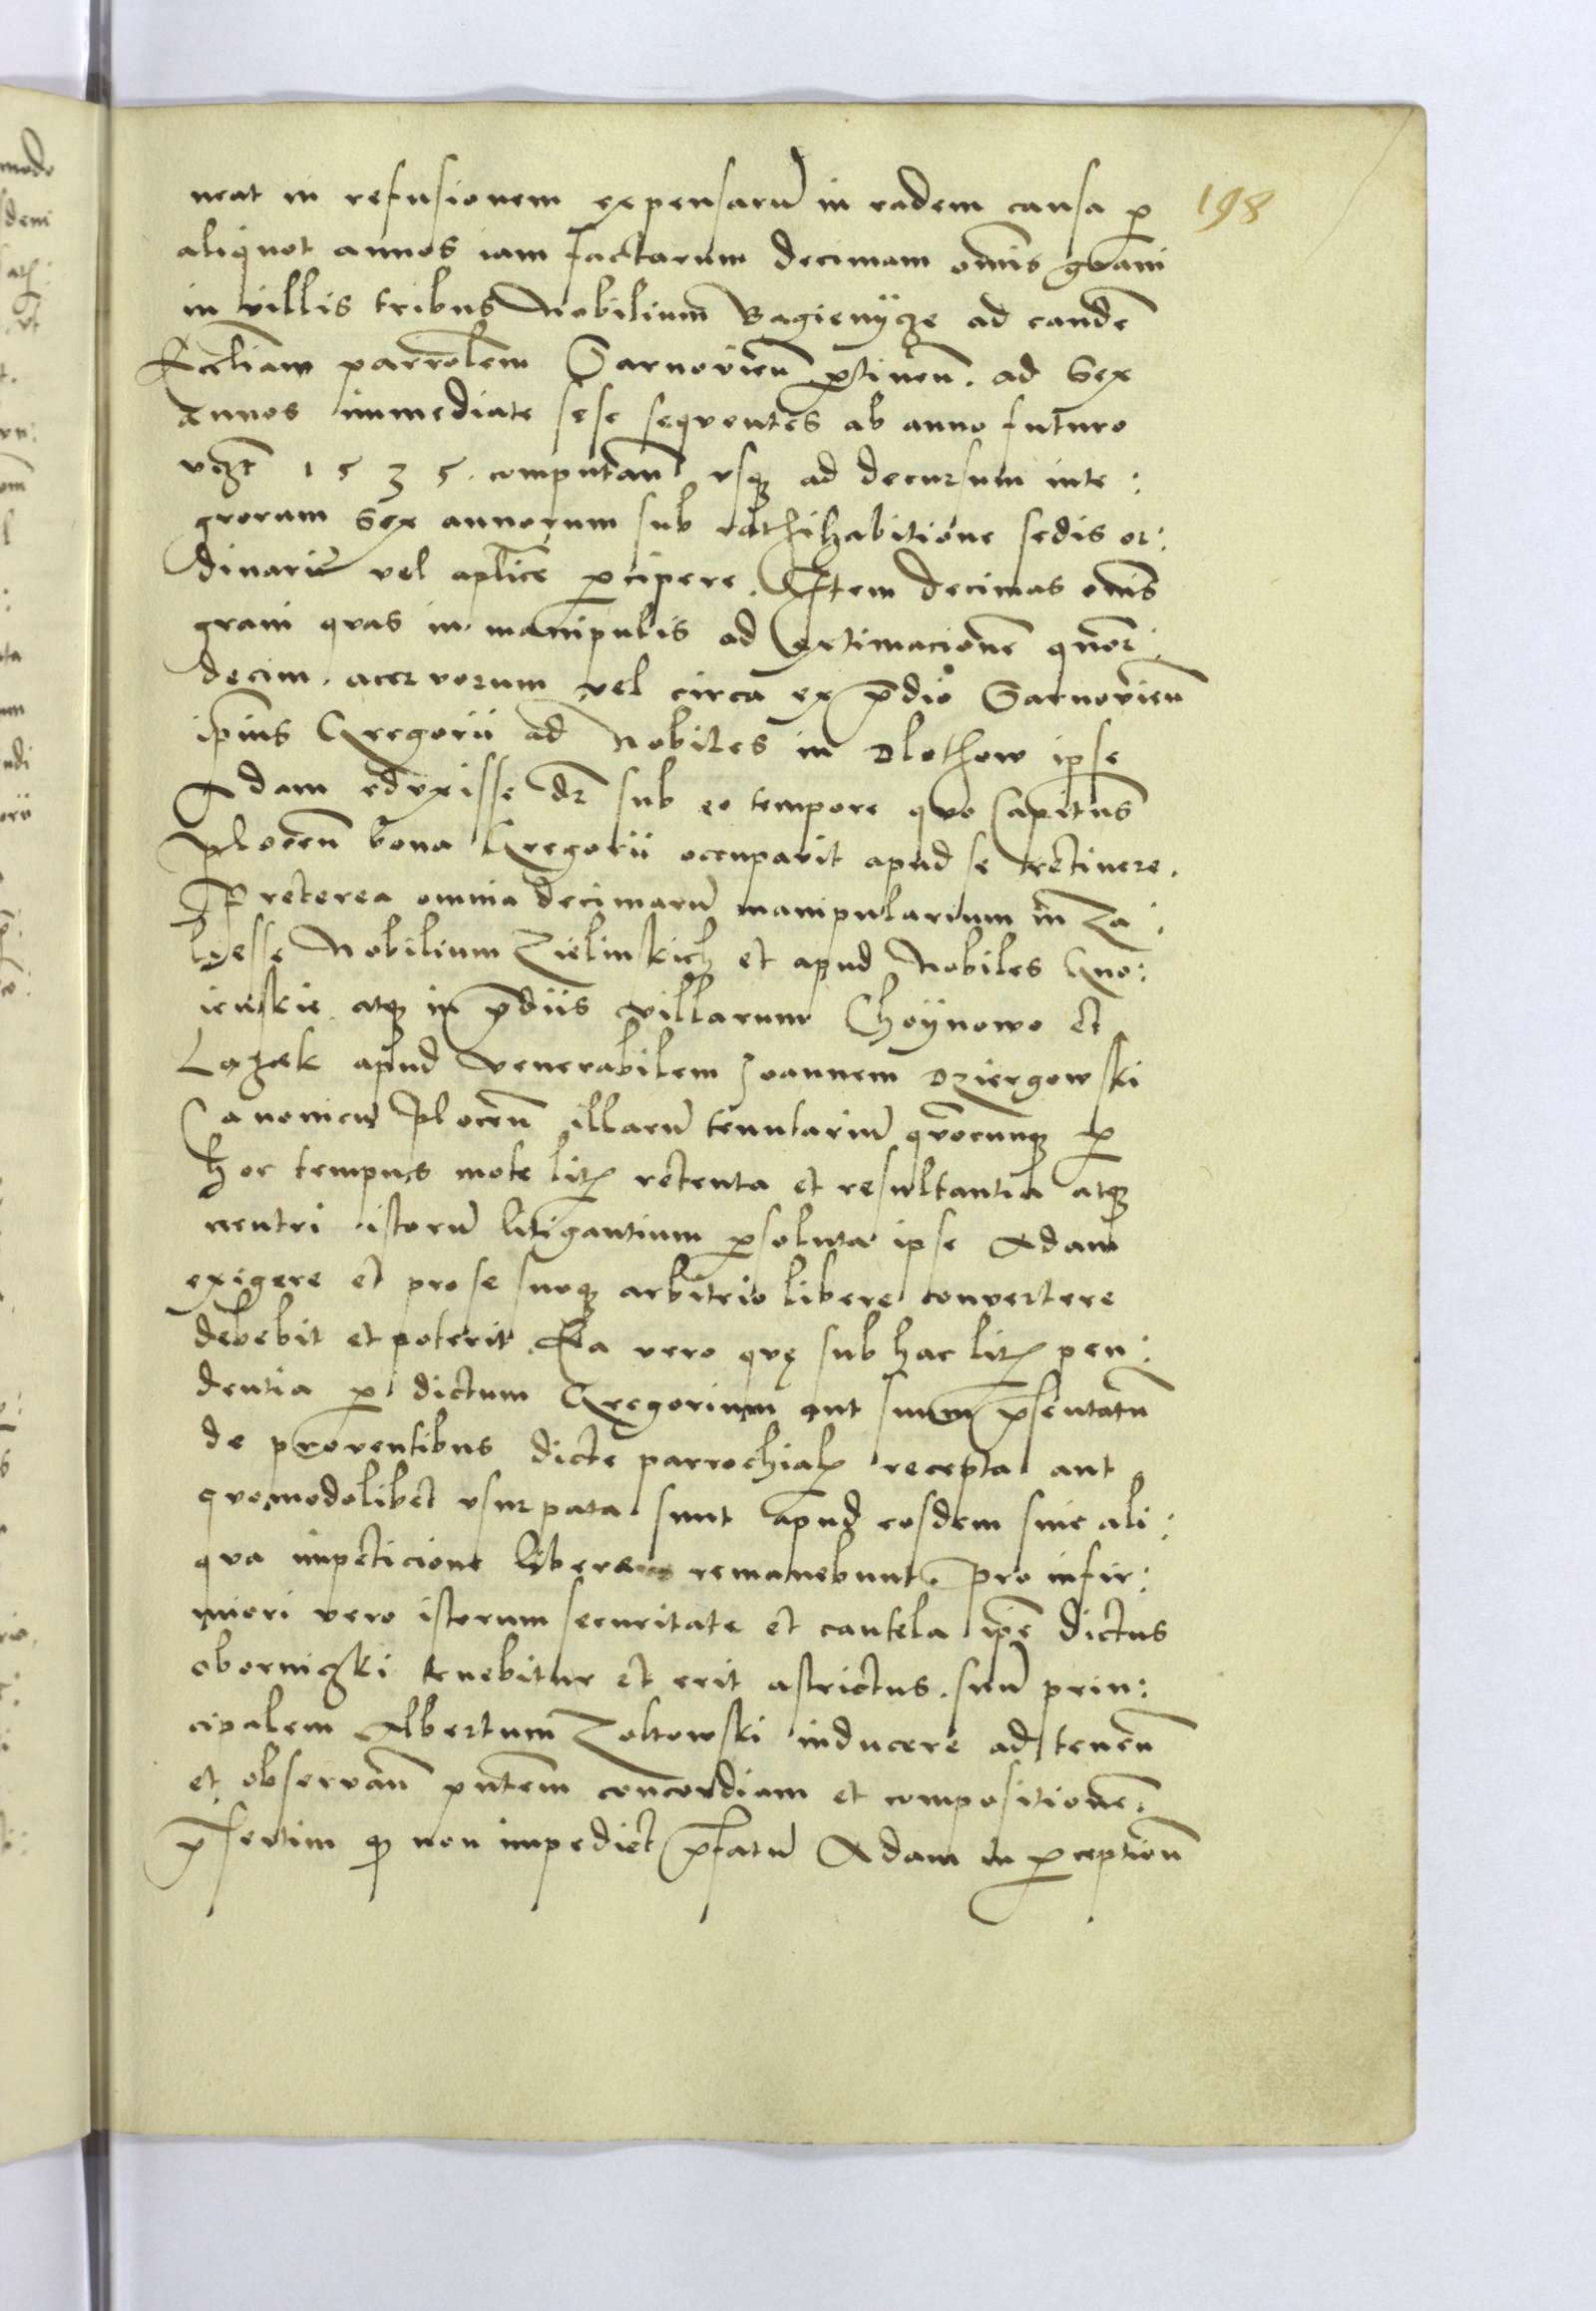 neat in refusionem expensarū in eadem causa p̱
198
aliquot annos iam factarum decimam om̄is grani
in villis tribus Nobilium Bagienÿcze ad eandē
Eccl̄iam parrōlem Sarnovien̄ p̱tinen̄. ad Sex
annos immediate sese sequentes ab anno futuro
vꝫt 1535. computan̄ vsqꝫ ad decursum inte:
grorum Sex annorum sub rathihabitione sedis or:
dinarię vel apl̄ice p̱cipere. Item decimas om̄is
grani quas in manipulis ad extimacionē quor:
decim. acervorum vel circa ex p̄dio Sarnovien̄
ip̄ius Gregorii ad Nobiles in Dlothow ipse
Adam eduxisse dr̄ sub eo tempore quo Capitm̄
plocen̄ bona Gregorii occupavit apud se retinere.
Preterea omnia decimarū manipularium in Za:
lyesse Nobilium Zielinskich et apud Nobiles Gno:
ienskie atqꝫ in p̄diis villarum Choÿnowo et
Lączek apud venerabilem Joannem Dziergowski
Canonicū plocen̄ illarū tenutariū quōcunqꝫ p̱
hoc tempus mote litꝭ retenta et resultantia atqꝫ
neutri istorū litigantium p̱soluta ipse Adam
exigere et pro se suoqꝫ arbitrio libere convertere
debebit et poterit. Ea vero quę sub hac litꝭ pen:
dentia p̱ dictum Gregorium aut suum p̄sentatū
de proventibus dicte parrochialꝭ recepta aut
quomodolibet vsurpata sunt apud eosdem sine ali:
qua impeticione libera remanebunt. pro infir:
miori vero istorum securitate et cautela ip̄e dictus
oborniczki tenebitur et erit astrictus. suū prin:
cipalem Albertum Zoltowski inducere ad tenen̄
et observan̄ pn̄tem concordiam et compositionē.
p̄sertim ꝙ non impediet p̄fatū Adam in p̱ception̄